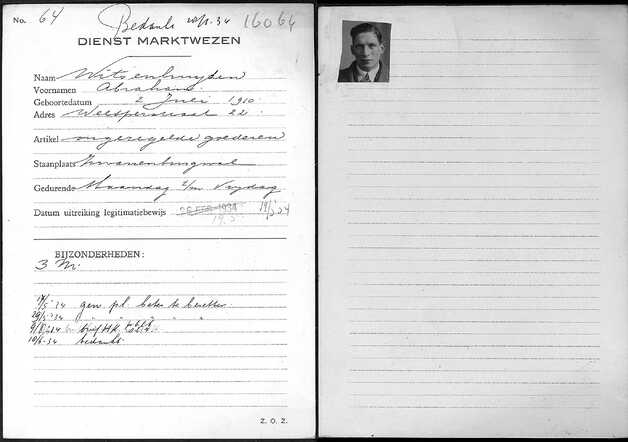 No. 64 Bedankt 10/8-34 16064
DIENST MARKTWEZEN
Naam Witzenhuyzen
Voornamen Abraham
Geboortedatum 2 Juli 1910
Adres Weesperstraat 22
Artikel ongeregelde goederen
Staanplaats Zwanenburgwal
Gedurende Maandag t/m Vrijdag
Datum uitreiking legitimatiebewijs 26 FEB. 1934
BIJZONDERHEDEN:
3 M.
gen. pl. beter te bezetten
" " " " "
brief H.K.
10/8-34 bedankt
Z. O. Z.